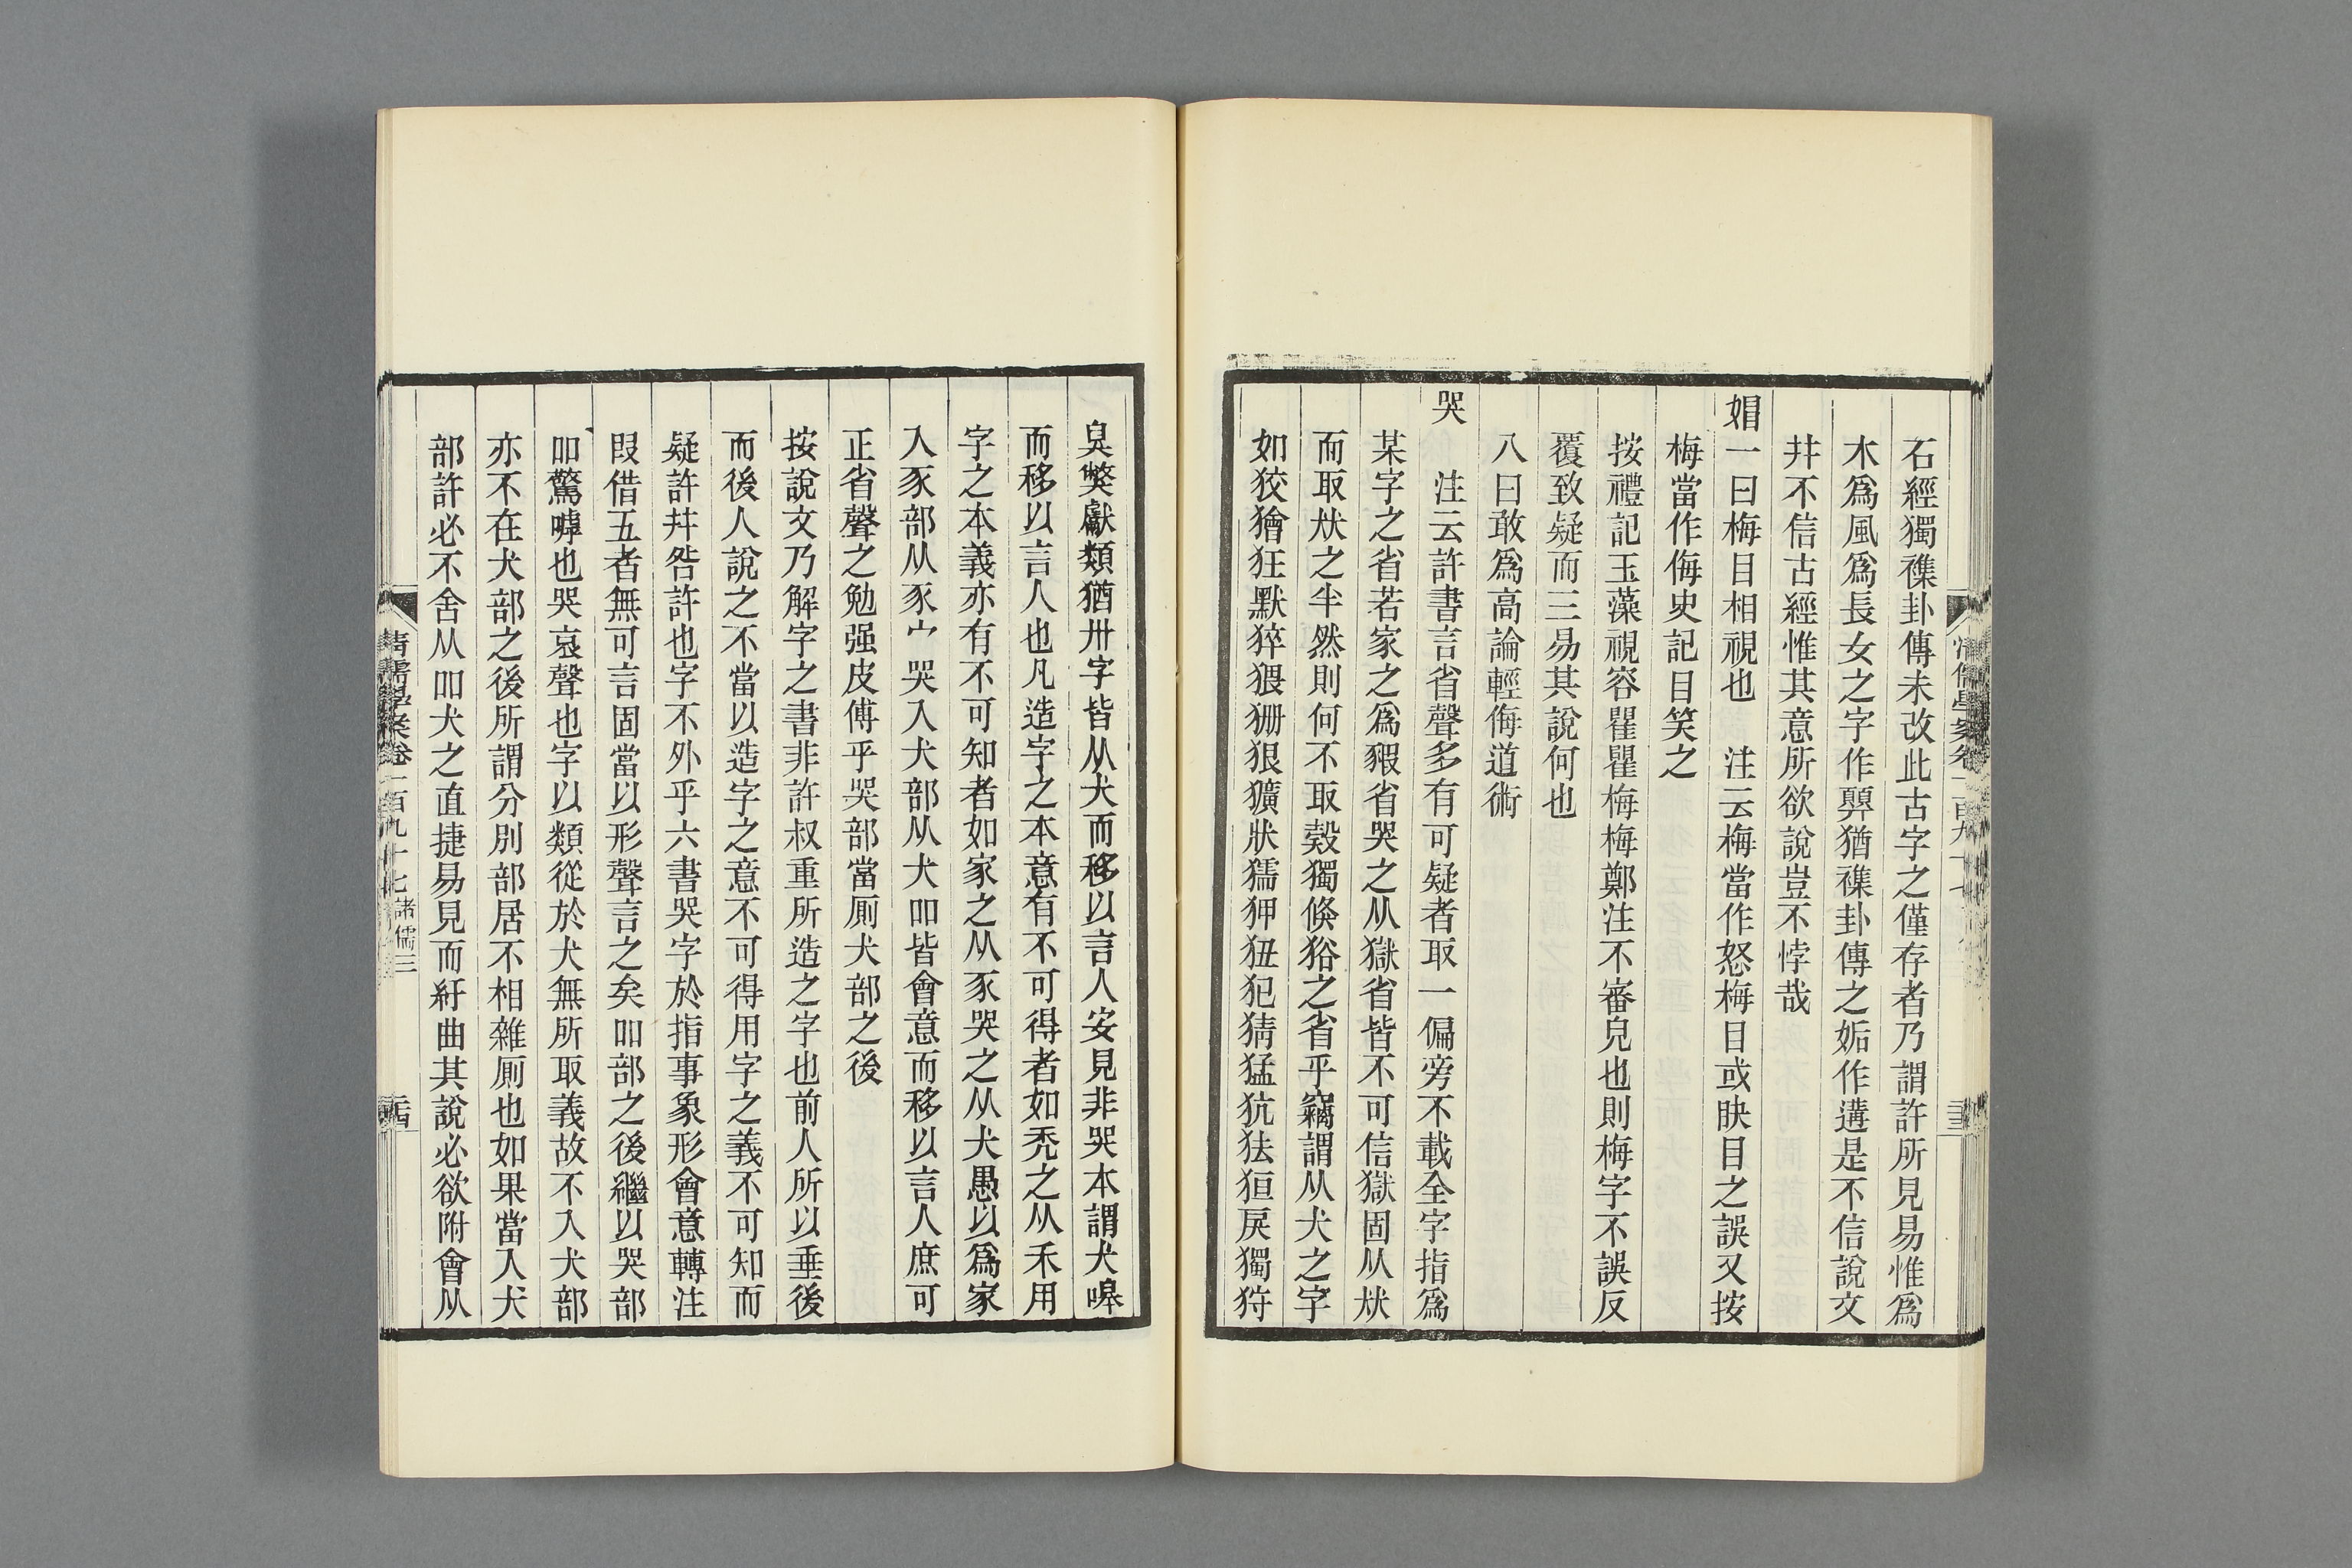 石經獨襍卦傳未改此古字之僅存者乃謂許所見易惟爲
木爲風爲長女之字作顨猶襍卦傳之姤作遘是不信說文
幷不信古經惟其意所欲說豈不悖哉
媢一曰梅目相視也 注云梅當作怒梅目或眣目之誤又按
梅當作侮史記目笑之
按禮記玉藻視容瞿瞿梅梅鄭注不審皃也則梅字不誤反
覆致疑而三易其說何也
八曰敢爲高論輕侮道術
哭 注云許書言省聲多有可疑者取一偏旁不載全字指爲
某字之省若家之爲豭省哭之从獄省皆不可信獄固从㹜
而取㹜之半然則何不取㺉獨倏狢之省乎竊謂从犬之字
如狡獪狂默猝猥狦狠獷狀獳狎狃犯猜猛犺狜狟戾獨狩
臭獘獻類猶卅字皆从犬而移以言人安見非哭本謂犬嗥
而移以言人也凡造字之本意有不可得者如禿之从禾用
字之本義亦有不可知者如家之从豕哭之从犬愚以爲家
入豕部从豕宀哭入犬部从犬吅皆會意而移以言人庶可
正省聲之勉强皮傅乎哭部當厠犬部之後
按說文乃解字之書非許叔重所造之字也前人所以垂後
而後人說之不當以造字之意不可得用字之義不可知而
疑許幷咎許也字不外乎六書哭字於指事象形會意轉注
叚借五者無可言固當以形聲言之矣吅部之後繼以哭部
吅驚嘑也哭哀聲也字以類從於犬無所取義故不入犬部
亦不在犬部之後所謂分別部居不相雜厠也如果當入犬
部許必不舍从吅犬之直捷易見而紆曲其說必欲附會从
清儒學案卷一百九十七 諸儒三